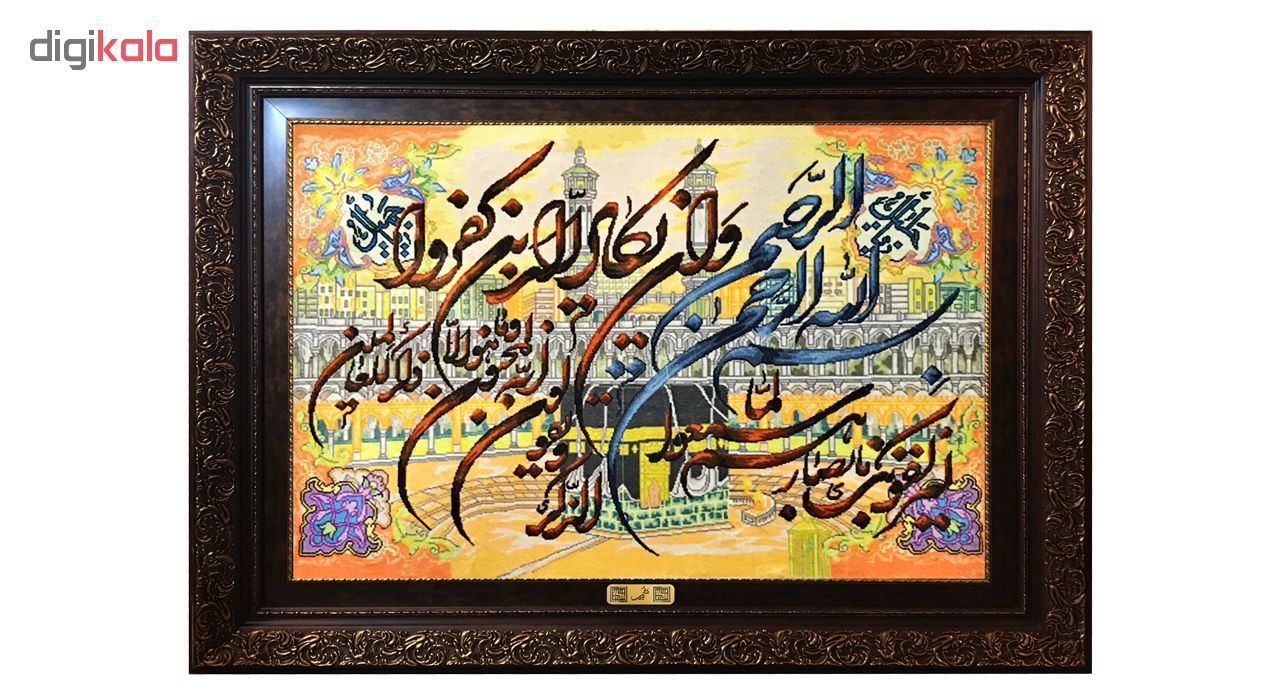 digikala
بسم الله الرحمن الرحیم
وان یکاد الذین کفروا
لیزلقونک بابصارهم لما سمعوا
الذکر ویقولون انه لمجنون وما هو الا ذکر للعالمین